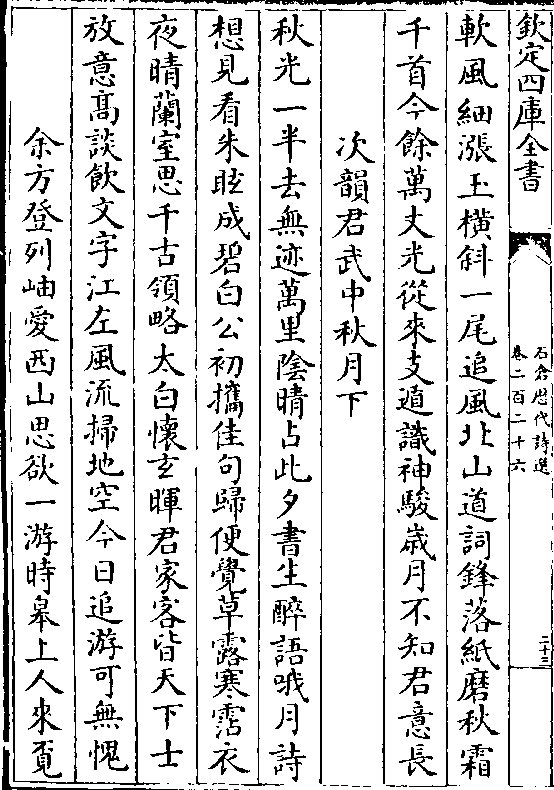 欽定四庫全書
石倉歴代詩選
卷二百二十六
二十三
軟風細漲玉横斜一尾追風北山道詞鋒落紙磨秋霜
千首今餘萬丈光從來支遁識神駿歳月不知君意長
次韻君武中秋月下
秋光一半去無迹萬里陰晴占此夕書生醉語哦月詩
想見看朱眩成碧白公初攜佳句歸便覺草露寒霑衣
夜晴蘭室思千古領略太白懷玄暉君家客皆天下士
放意髙談飲文字江左風流掃地空今日追游可無愧
余方登列岫愛西山思欲一游時皋上人來覔